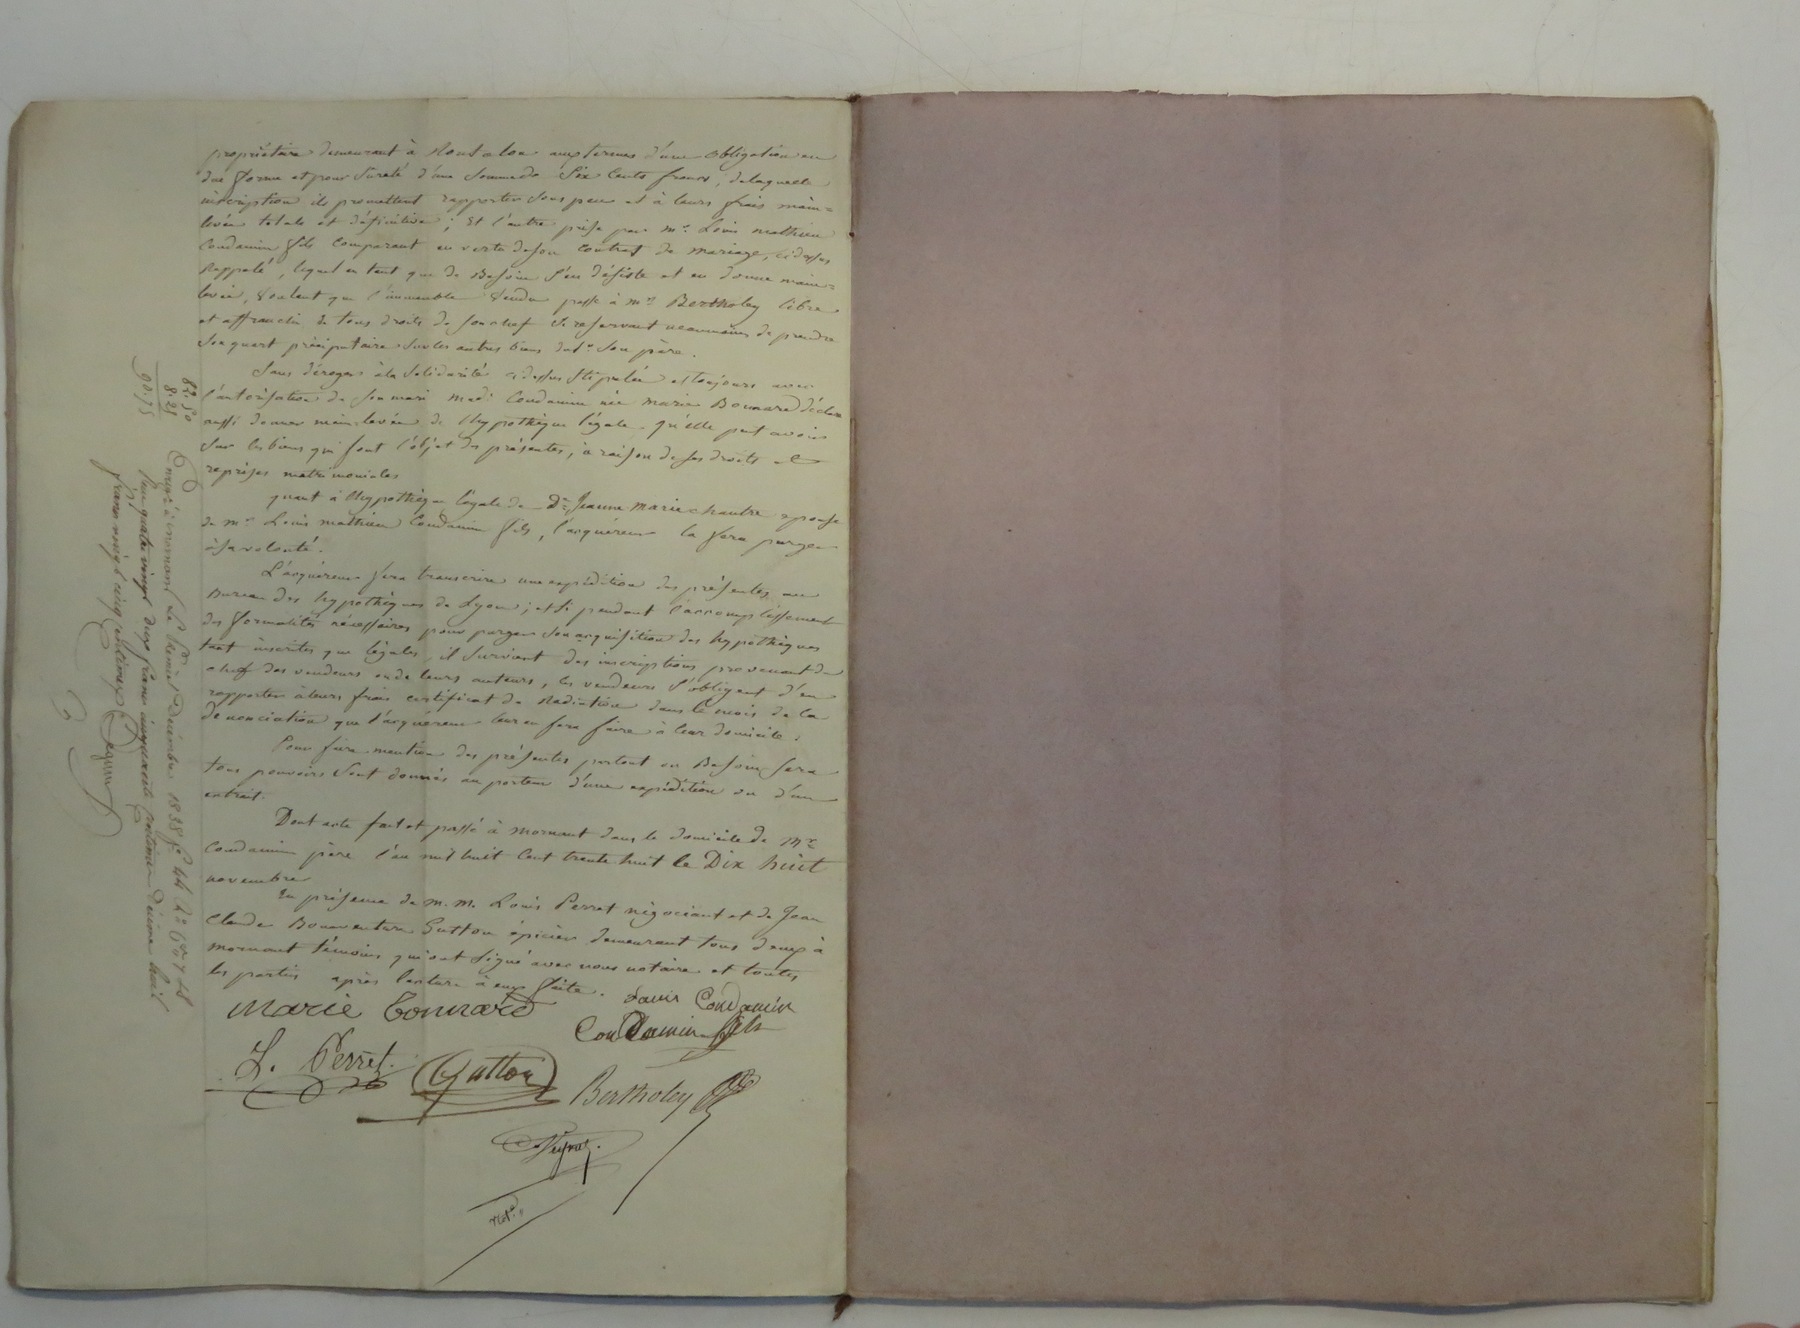 propriétaire demeurant à aux termes d'une obligation en
due forme et pour sureté d'une somme de Six Cents francs, de laquelle
inscription ils promettent rapporter sous peu et à leurs frais main=
levée totale et définitive ; Et l'autre prise par mr. Louis mathieu
Condamin fils comparant en vertu de son contrat de mariage, ci dessus
Rappelé, lequel en tant que de Besoin s'en désiste et en donne main=
levée, voulant que l'immeuble vendu passe à mr. Bertholey libre
et affranchi de tous droits de son chef se reservant néanmoins de prendre
son quart préciputaire sur les autres biens dudt. Son père.
Sans déroger à la solidarité ci dessus stipulée et toujours avec
l'autorisation de son mari made. Condamin née marie Bonnard déclare
aussi donner main levée de l'hypothèque légale qu'elle peut avoir
sur les biens qui font l'objet des présentes, à raison de ses droits et
reprises matrimoniales
quant à l'hypothèque légale de De. Jeanne marie chambre epouse
de mr. Louis mathieu Condamin fils, l'acquéreur la fera purger
à sa volonté.
L'acquéreur fera transcrire une expédition des présentes au
Bureau des hypothèques de Lyon ; et Si pendant l'accomplissement
des formalités nécessaires pour purger son acquisition des hypothèques
tant inscrites que légales, il survient des inscriptions provenant du
chef des vendeurs ou de leurs auteurs, les vendeurs s'obligent d'en
rapporter à leurs frais certificat de Radiation dans le mois de la
dénonciation que l'acquéreur leur en fera faire à leur domicile.
Pour faire mention des présentes partout ou Besoin sera
tous pouvoirs sont donnés au porteur d'une expédition ou d'un
extrait.
Dont acte fait et passé à mornant dans le domicile de Mr.
Condamin père l'an mil huit Cent trente huit le Dix huit
novembre
En présence de m.m. Louis Perret négociant et de Jean
Claude Bonaventure Gutton épicier demeurant tous deux à
mornant témoins qui ont signé avec nous notaire et toutes
les parties après lecture à eux faite.
Marie Bonnard
Louis Condamin
Condamin fils
L. Perret
Gutton
Bertholey
Notre.
82.50
8.25
90.75
Enregé. à mornant le premier Decembre 1838 fo. 44
quatre vingt deux francs cinquante centimes Décime huit
francs vingt cinq centimes